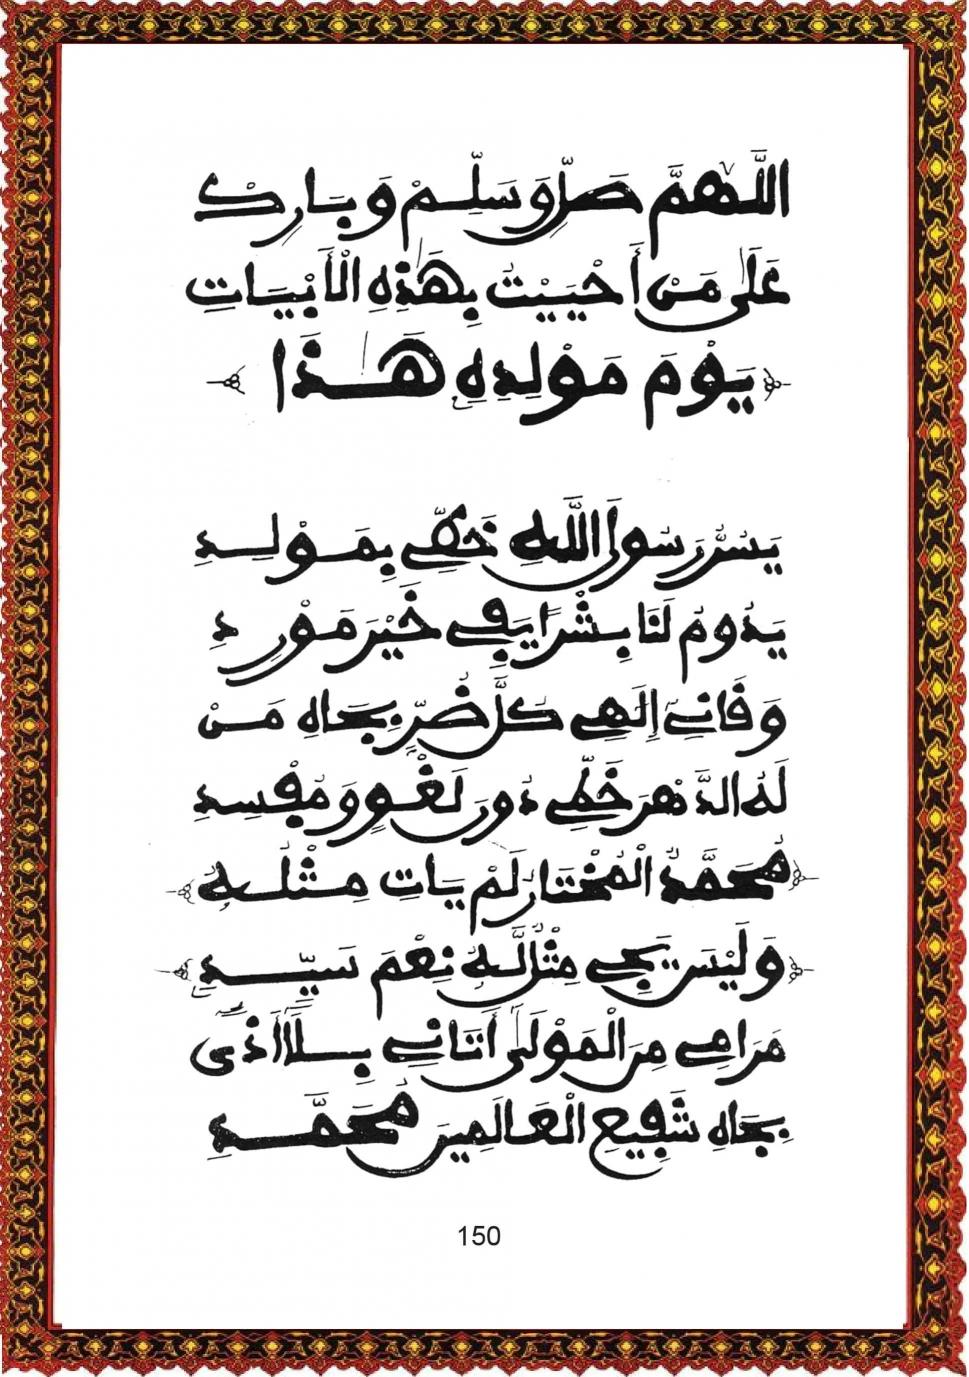 اللَّهُمَّ صَلِّ وَسَلِّمْ وَبَارِكْ
عَلَى مَنْ أَحْيَيْتُ بِهَذِهِ الْأَبْيَاتِ
يَوْمَ مَوْلِدِهِ هَذَا
يَسُرُّ رَسُولَ اللَّهِ خَطِّي بِمَوْلِدِ
يَدُومُ لَنَا بِشْرًا يَفِي خَيْرَ مَوْرِدِ
وَقَانِي إِلَهِي كُلَّ ضُرٍّ بِجَاهِ مَنْ
لَهُ الدَّهْرَ خَطِّي دُونَ لَغْوٍ وَمُفْسِدِ
مُحَمَّدٌ الْمُخْتَارُ لَمْ يَاتِ مِثْلُهُ
وَلَيْسَ يَجِي مِثْلٌ لَهُ نِعْمَ سَيِّدِ
مَرَامِي مِنَ الْمَوْلَى أَتَانِي بِلَا أَذًى
بِجَاهِ شَفِيعِ الْعَالَمِينَ مُحَمَّدِ
150